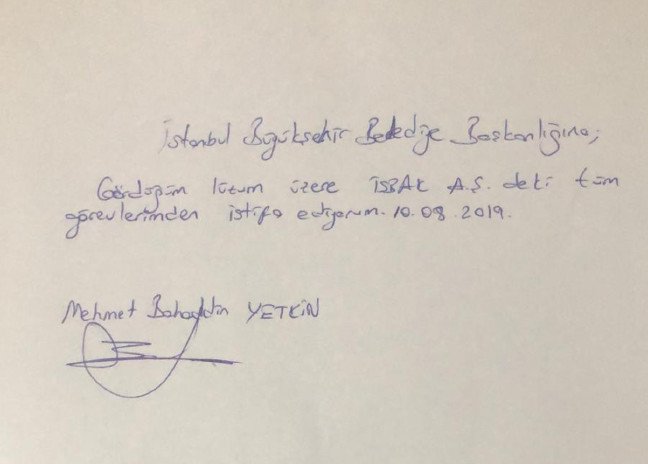 İstanbul Büyükşehir Belediye Başkanlığına;
Gördüğüm lüzum üzere İSBAK A.Ş. deki tüm
görevlerimden istifa ediyorum. 10.08.2019.
Mehmet Bahaettin YETKİN